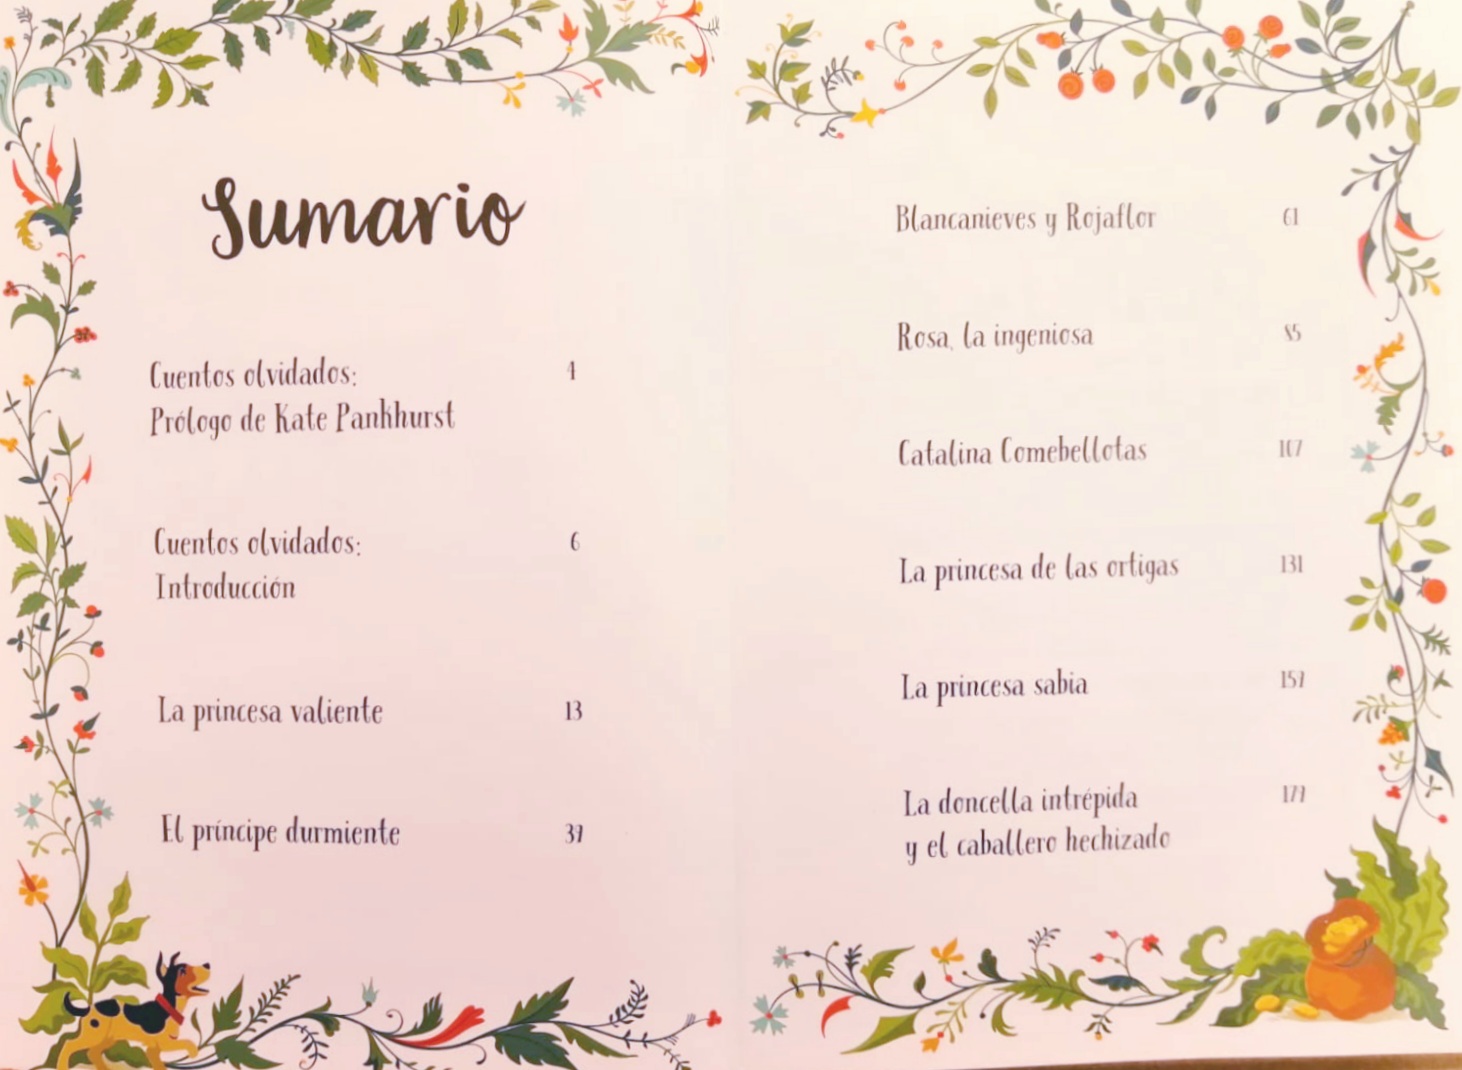 Sumario
Cuentos olvidados: 4
Prólogo de Kate Pankhurst
Cuentos olvidados: 6
Introducción
La princesa valiente 13
El príncipe durmiente
Blancanieves y Rojaflor 61
Rosa, la ingeniosa 85
Catalina Comebellotas 107
La princesa de las ortigas 131
La princesa sabia
La doncella intrépida
y el caballero hechizado